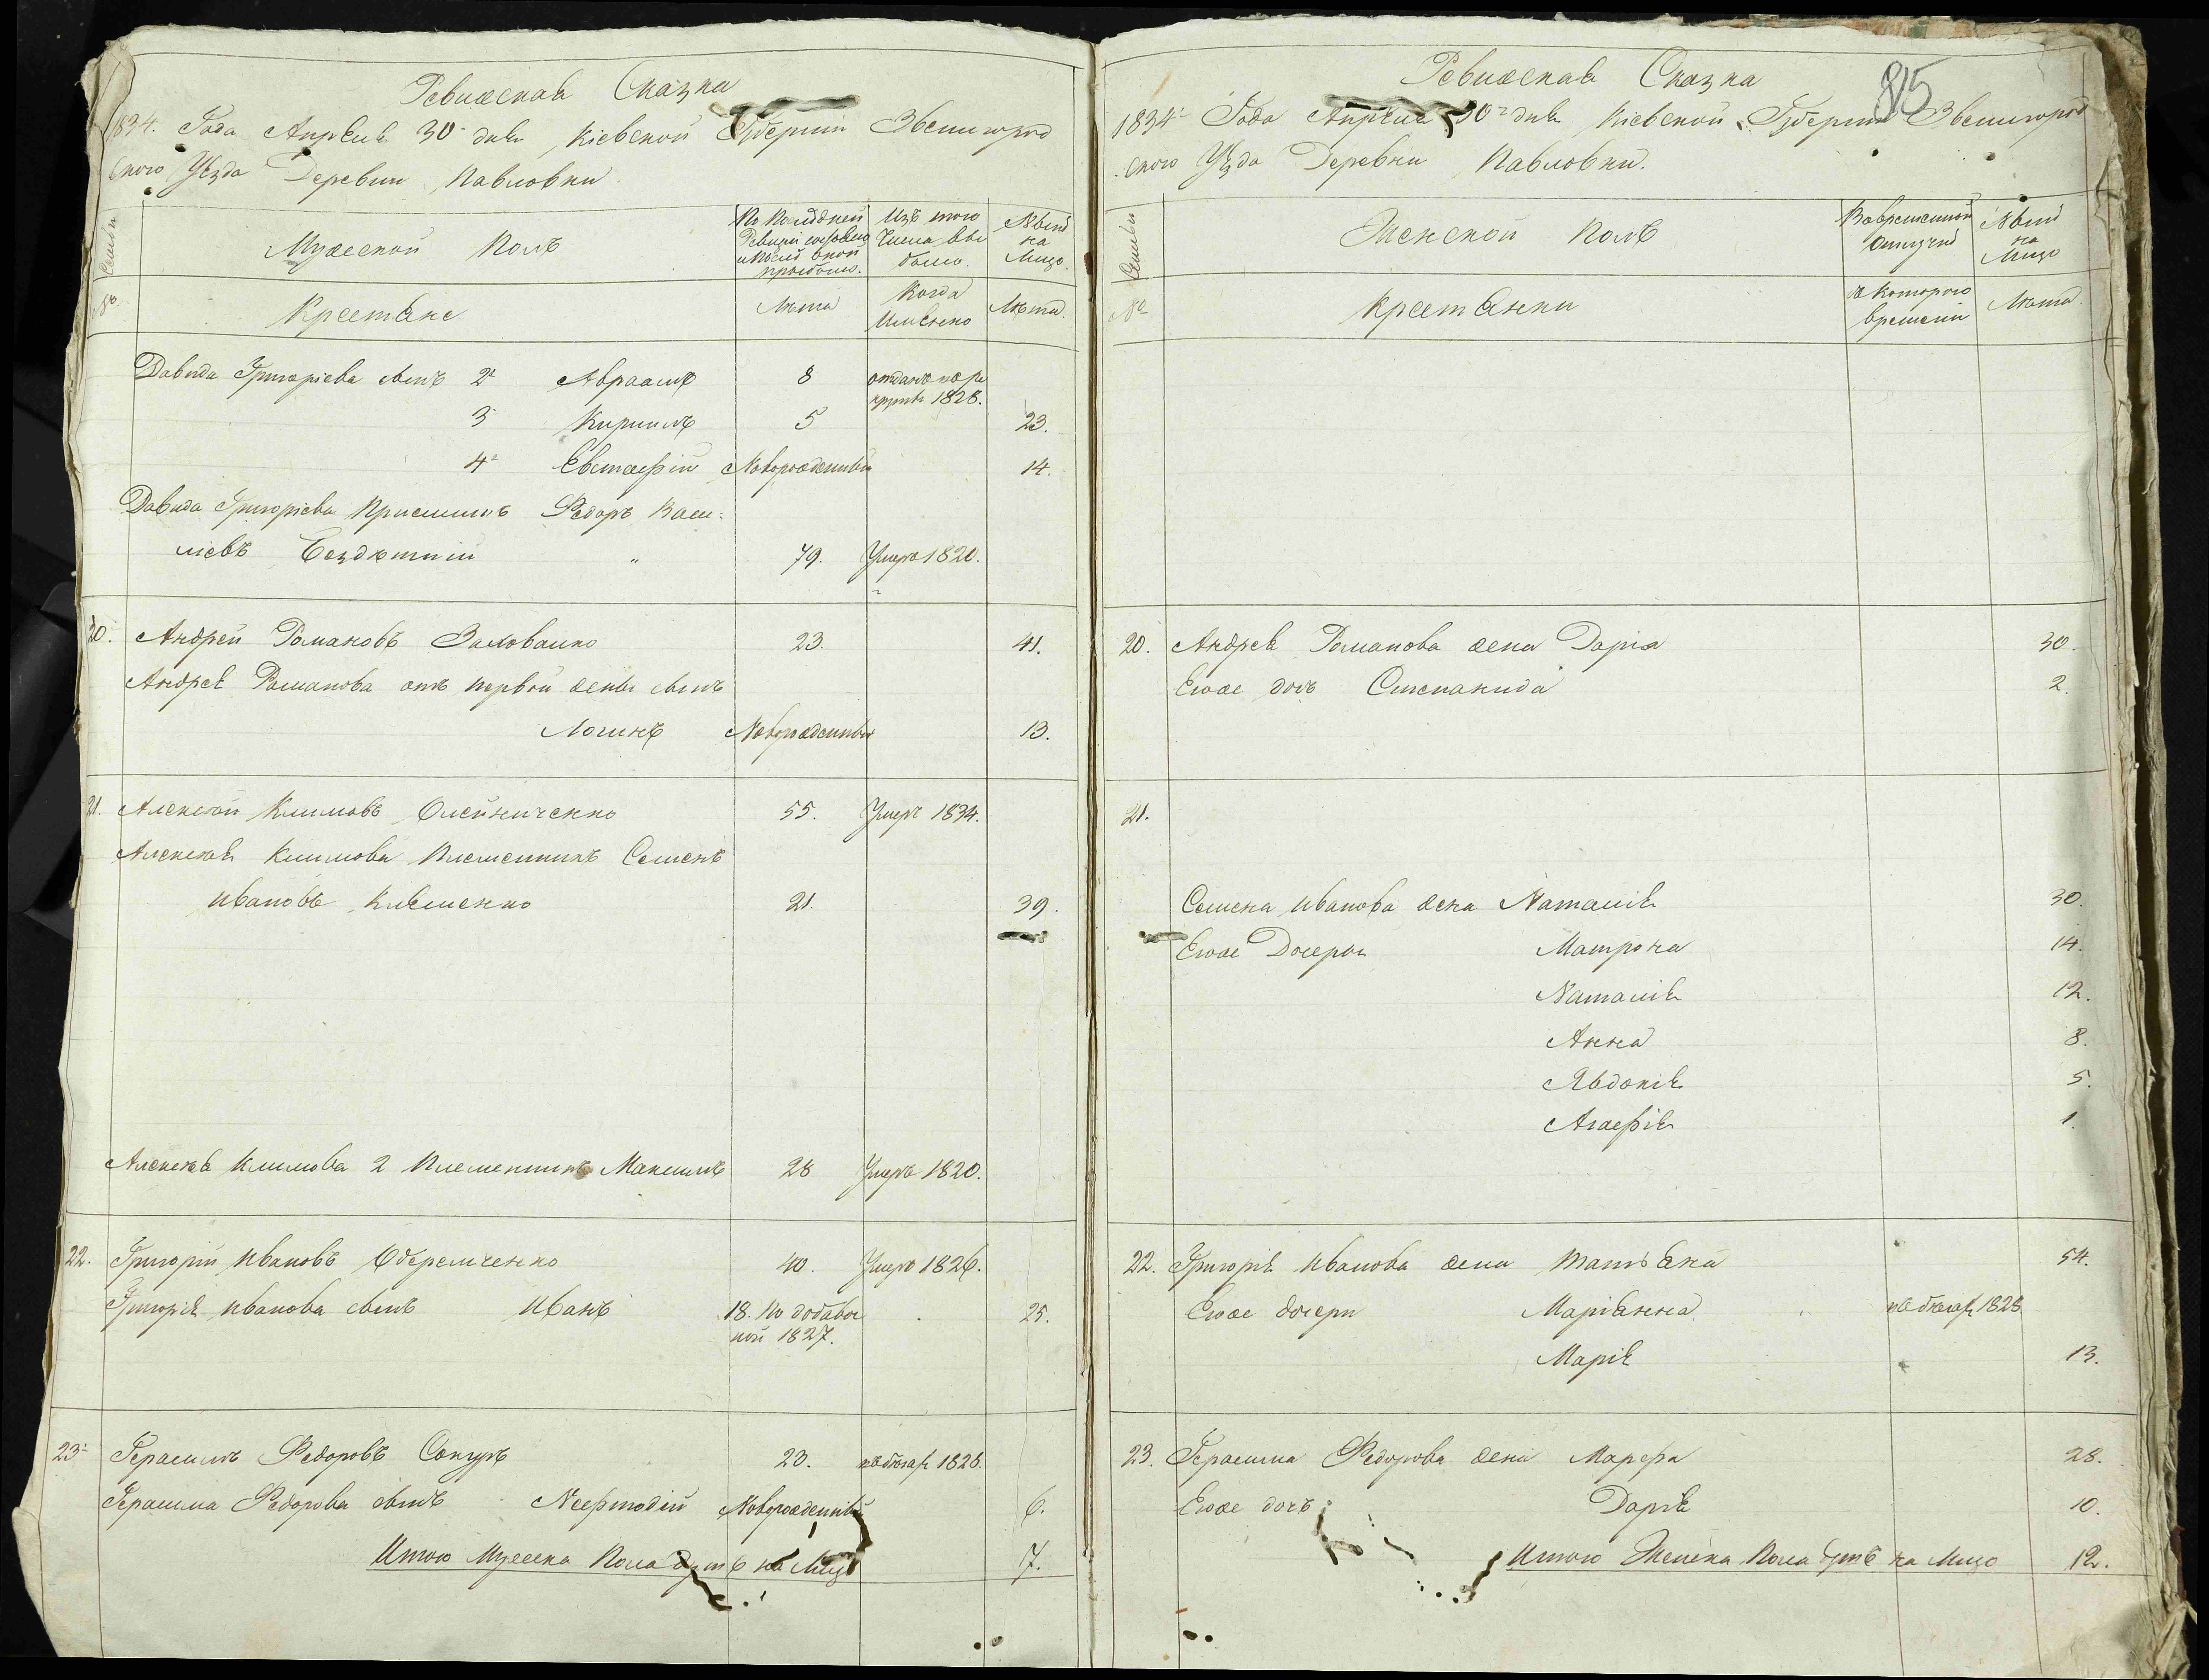 Ревизская Сказка
1834. Года Апреля 30 дня Кіевской Губерніи Звенигород
ского Уезда Деревни Павловки
Семьи
Мужеской Полъ
По последней Ревизіи состояло и после оной прибыло.
Изъ того Числа выбыло.
Ныне на Лицо.
№
Крестяне
Лета
Когда Имянно
Лета.
Давида Григоріева сынъ 2й Авраамъ 8 отданъ въ рекруты 1828.
3 Кирилъ 5 23.
4й Евстафій Новорожденный 14.
Давида Григоріева Приемышъ Федоръ Васи:
ліевъ Бездетній " 79. Умеръ 1820.
20. Андрей Романовъ 23. 41.
Андрея Романова отъ первой жены сынъ
Логинъ Новорожденный 13.
21. Алексей Климовъ Олейниченко 55. Умеръ 1834.
Алексея Климова Племенникъ Семенъ
Ивановъ Клеменко 21. 39.
Алексея Климова 2 Племенникъ Максимъ 28 Умеръ 1820.
22. Григорій Ивановъ Оберемченко 40. Умеръ 1826.
Григорія Иванова сынъ Иванъ 18. По добавочной 1827. 25.
23. Герасимъ Федоровъ Сокуръ 23. въ бегах 1828.
Герасима Федорова сынъ Неефтодій Новорожденный 6.
Итого Мужеска Пола душъ на Лицо 7.
815
Ревизская Сказка
1834 Года Апреля 30 дня Кіевской Губерніи Звенигород
ского Уезда Деревни Павловки.
Семьи
Женской Полъ
Во временной отлучке
Ныне на Лицо
№
Крестянки
съ которого времени
Лета.
20. Андрея Романова жена Дарія 30.
Егоже дочь Степанида 2.
21.
Семена Иванова жена Наталія 30.
Егоже Дочери Матрона 14.
Наталія 12.
Анна 8.
Явдокія 5.
Агафія 1.
22. Григорія Иванова жена Татіяна 54.
Егоже дочери Маріянна въ бегах 1828
Марія 13.
23. Герасима Федорова жена Марфа 28.
Егоже дочь Дарія 10.
Итого Женска Пола душъ на Лицо 12.